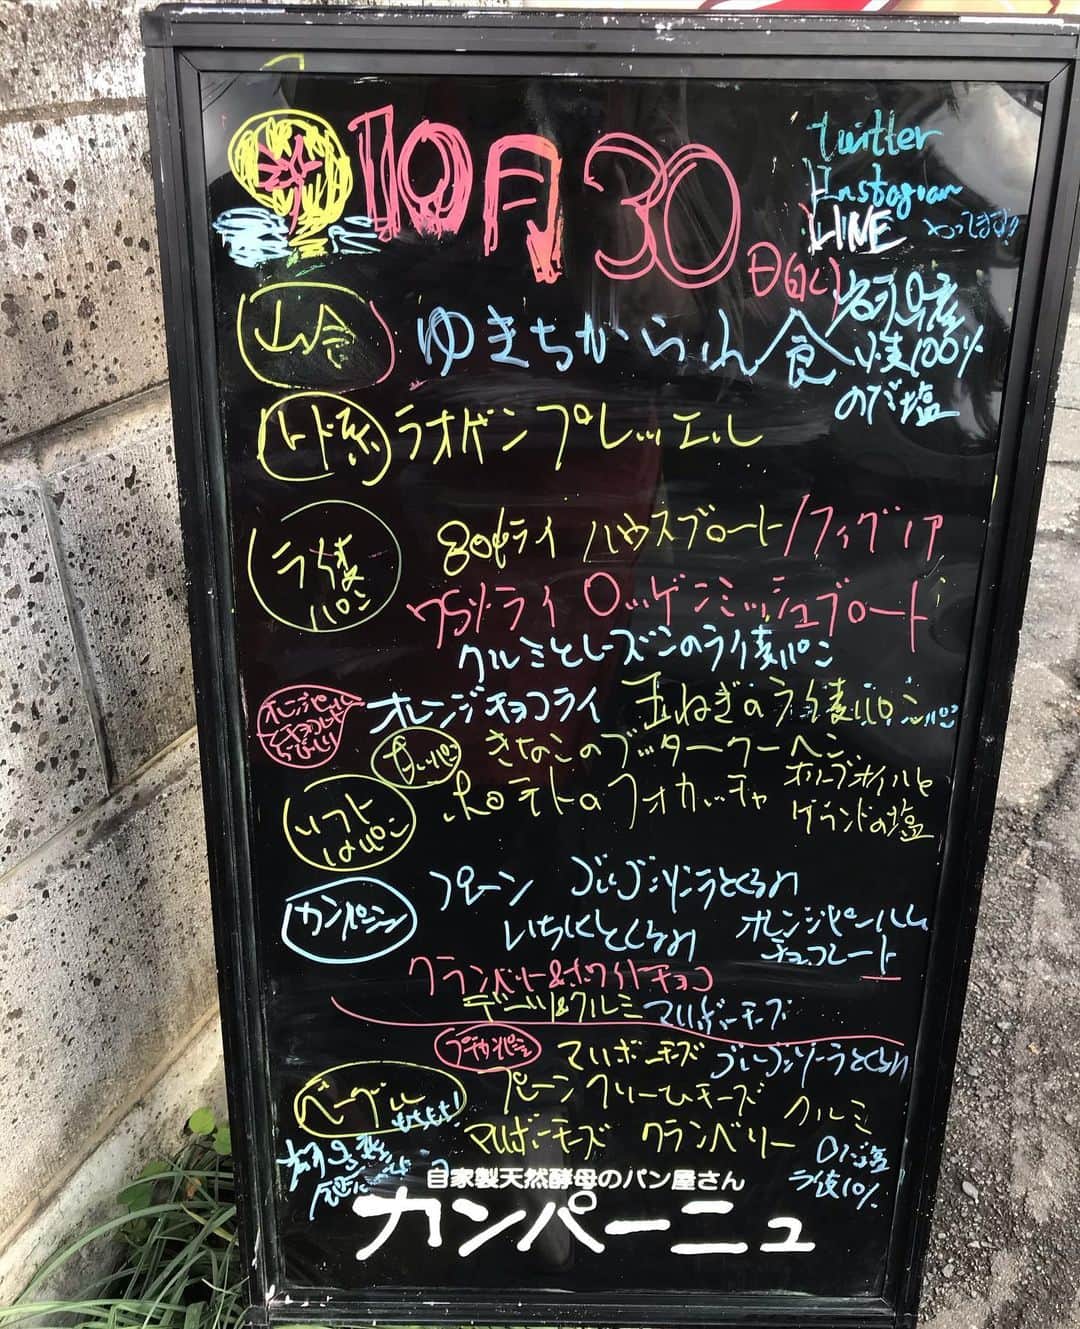 10月30日(水)
twitter
Instagram
LINE
やってます!!
山食
ゆきちから山食
小麦100%
のだ塩
ラオゲンプレッツェル
ライ麦
パン
80%ライ ハウスブロート/フィグノア
75%ライ ロッゲンミッシュブロート
クルミとレーズンのライ麦パン
オレンジピールと
チョコレート
オレンジチョコライ 玉ねぎのライ麦パン
きなこのブッタークーヘン
ソフト
なパン
ポテトのフォカッチャ
オリーブオイルと
ゲランドの塩
カンパーニュ
プレーン ゴルゴンゾーラとくるみ
いちじくとくるみ
オレンジピール
チョコレート
クランベリー&ホワイトチョコ
デーツ&クルミ マリボーチーズ
プチカンパーニュ
マリボーチーズ ゴルゴンゾーラとくるみ
ベーグル
もちもち!
プレーン クリームチーズ クルミ
マリボーチーズ クランベリー
のだ塩
ライ麦10%
自家製天然酵母のパン屋さん
カンパーニュ